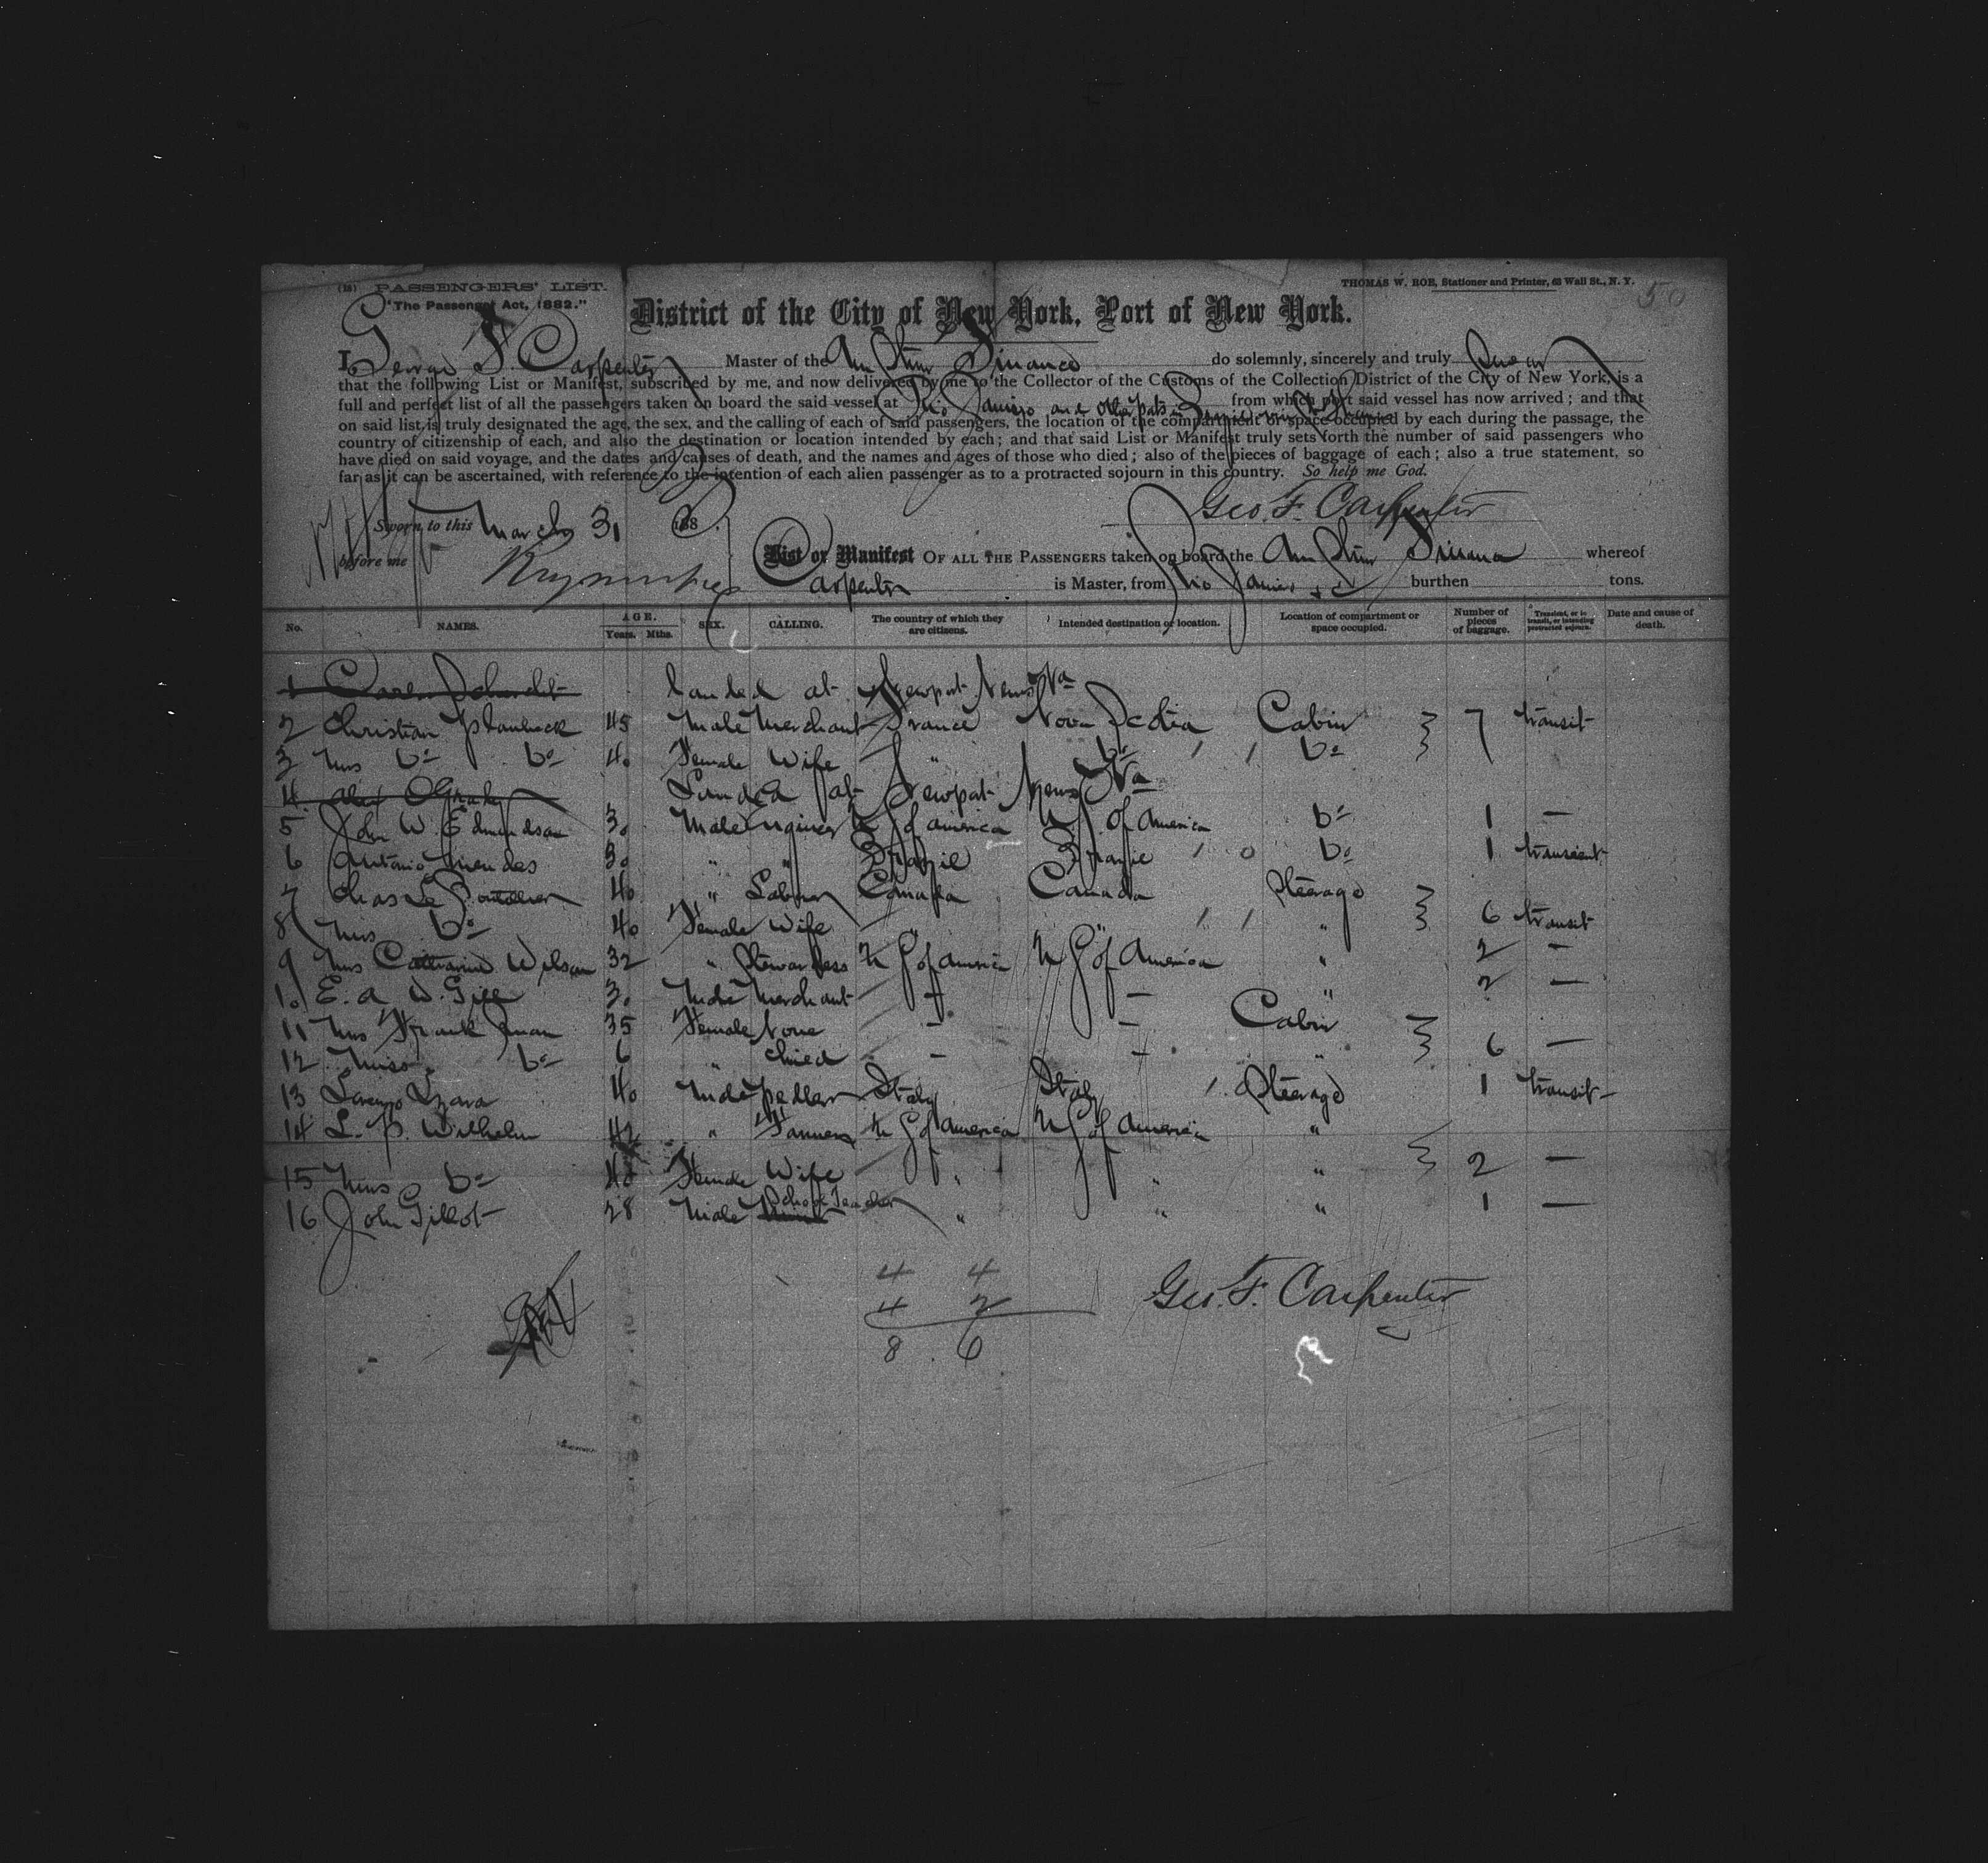 (18) PASSENGERS' LIST.
"The Passenger Act, 1882."
THOMAS W. ROE, Stationer and Printer, 63 Wall St., N. Y.
50
District of the City of New York, Port of New York.
I, George F. Carpenter Master of the Am Stmr Finance do solemnly, sincerely and truly swear
that the following List or Manifest, subscribed by me, and now delivered by me to the Collector of the Customs of the Collection District of the City of New York, is a
full and perfect list of all the passengers taken on board the said vessel at Rio Janiero and other ports in Brazil from which port said vessel has now arrived; and that
on said list is truly designated the age, the sex, and the calling of each of said passengers, the location of the compartment or space occupied by each during the passage, the
country of citizenship of each, and also the destination or location intended by each; and that said List or Manifest truly sets forth the number of said passengers who
have died on said voyage, and the dates and causes of death, and the names and ages of those who died; also of the pieces of baggage of each; also a true statement, so
far as it can be ascertained, with reference to the intention of each alien passenger as to a protracted sojourn in this country. So help me God.
Geo. F. Carpenter
Sworn to this March 31 188
before me
List or Manifest OF ALL THE PASSENGERS taken on board the Am Stmr Finance whereof
Carpenter is Master, from Rio Janiero burthen tons.
No. NAMES. AGE. Years. Mths. SEX. CALLING. The country of which they are citizens. Intended destination or location. Location of compartment or space occupied. Number of pieces of baggage. Transient, or in transit, or intending protracted sojourn. Date and cause of death.
1 landed at Newport News Va
2 Christian 45 Male Merchant France Nova Scotia Cabin 7 transit
3 Mrs Do Do 40 Female Wife " Do Do
4 Landed at Newport News Va
5 John W. Edmundson 30 Male Engineer U S of America U S of America Do 1 —
6 Antonio Mendes 30 " " Brazil Brazil Do 1 transient
7 Chas 40 " Laborer Canada Canada Steerage
8 Mrs Do 40 Female Wife " " " 6 transit
9 Mrs Catharine Wilson 32 " Stewardess U S of America U S of America " 2 —
10 E. A. W. Gill 30 Male Merchant — — " 2 —
11 Mrs Frank 35 Female None — — Cabin
12 Miss Do 6 " Child — — " 6 —
13 Lorenzo 40 Male Pedler Italy Italy Steerage 1 transit
14 L. P. Wilhelm 42 " Farmer U S of America U S of America "
15 Mrs Do 40 Female Wife " " " 2 —
16 John Gillot 28 Male School Teacher " " " 1 —
4 4
4 2
8 6
Geo. F. Carpenter